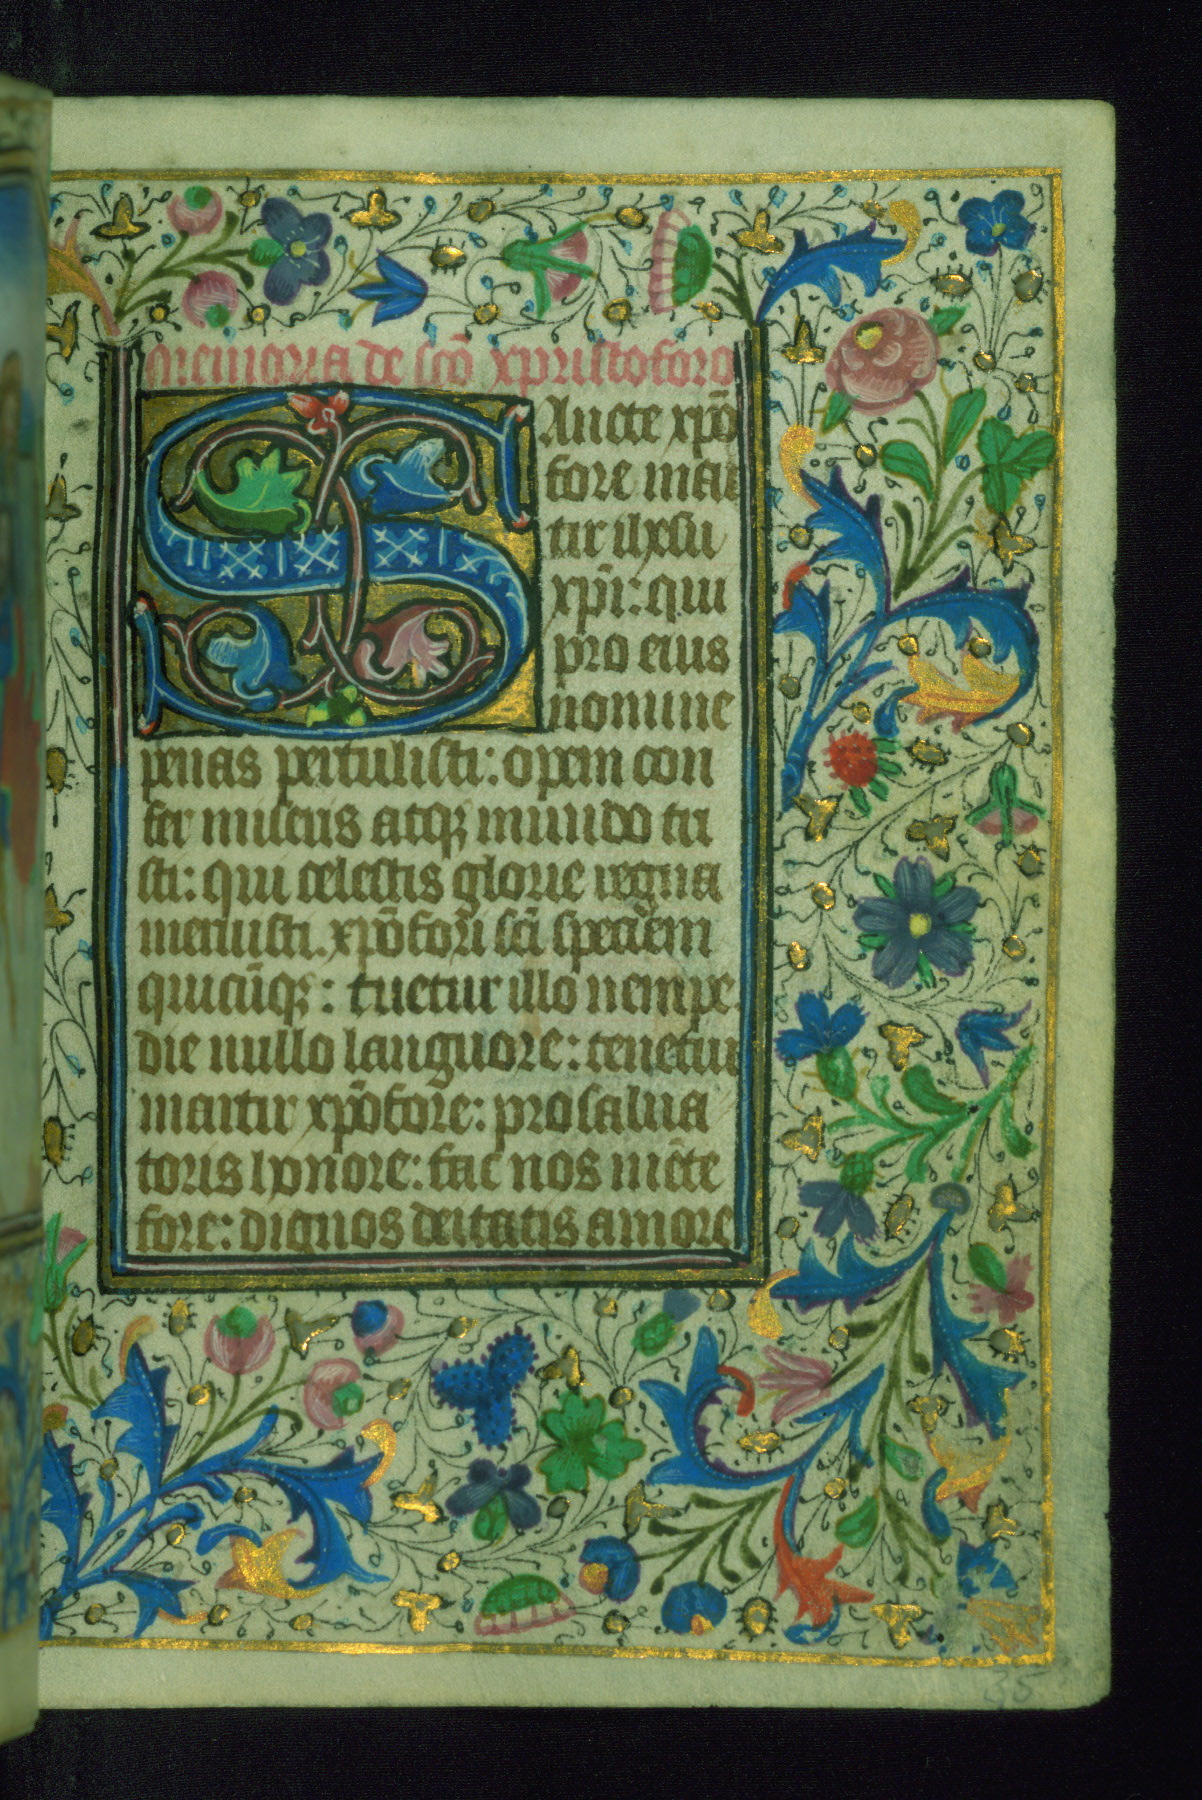 Memoria de sco xpristoforo
SAncte xpo
fore mar
tir ihesu
xpi: qui
pro eius
nomine
penas pertulisti: opem con
fer miseris atqꝫ mundo tri
sti: qui celestis glorie regna
meruisti. xpofori sci speciem
quicūqꝫ: tuetur illo nempe
die nullo languore: tenetur
martir xpofore: pro salua
toris honore: fac nos mēte
fore: dignos deitatis amore
35